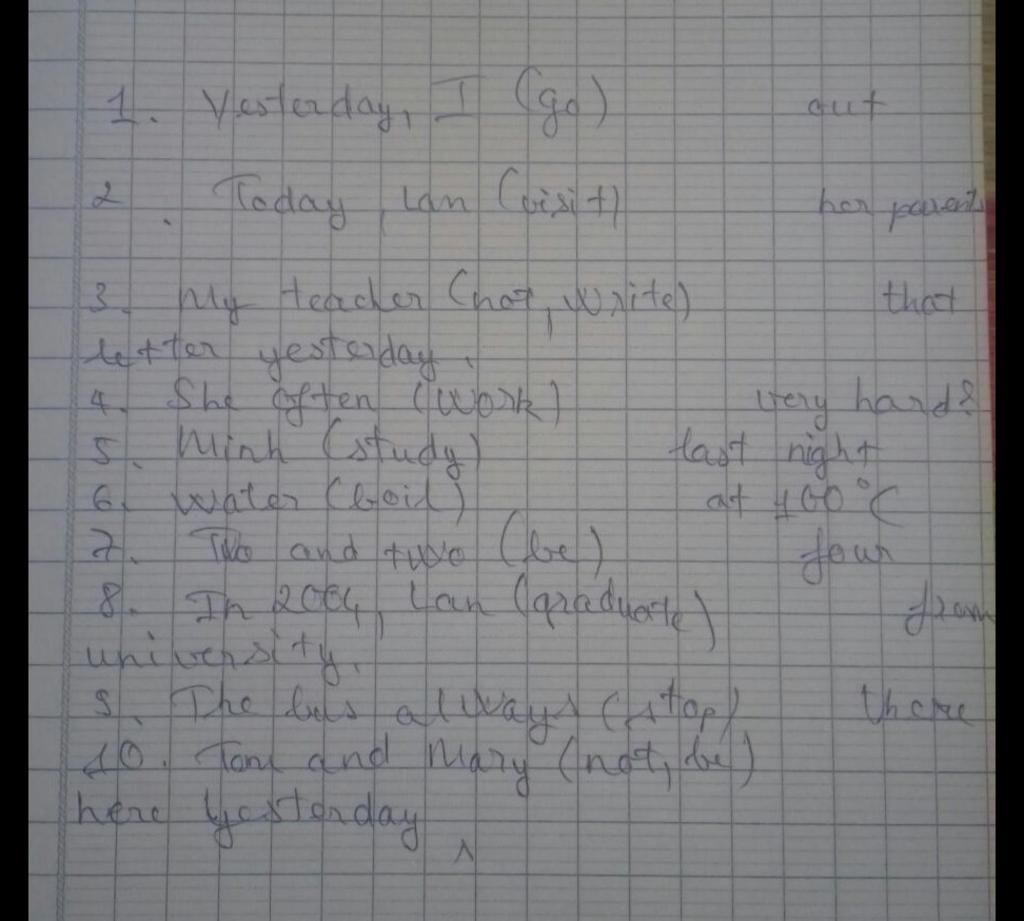 1. Yesterday, I (go) out
2. Today, Lan (visit) her parents
3. My teacher (not, write) that
letter yesterday.
4. She often (work) very hard?
5. Minh (study) last night
6. Water (boil) at 100°C
7. Two and two (be) four
8. In 2004, Lan (graduate) from
university.
9. The bus always (stop) there
10. Tom and Mary (not, be)
here yesterday